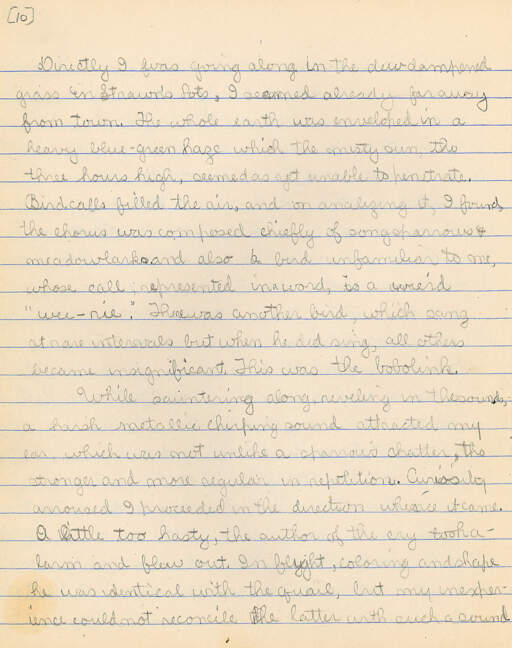 [10]
Directly I was going along in the dew dampened
grass in Strawn's lots, I seemed already far away
from town. The whole earth was enveloped in a
heavy blue-green haze which the misty sun, tho
three hours high, seemed as yet unable to penetrate.
Birdcalls filled the air, and on analyzing it, I found
the chorus was composed chiefly of song sparrows &
meadowlarks and also a bird unfamiliar to me,
whose call, represented in a word, is a weird
"wee-rie". There was another bird, which sang
at rare intervals but when he did sing, all others
became insignificant. This was the bobolink.
While sauntering along, reveling in the sounds,
a harsh metallic chirping sound attracted my
ear, which was not unlike a sparrow's chatter, tho
stronger and more regular in repitition. Curiosity
arroused I proceeded in the direction whence it came.
A little too hasty, the author of the cry took a-
larm and flew out. In flight, coloring and shape
he was identical with the quail, but my inexper-
ience could not reconcile the latter with such a sound